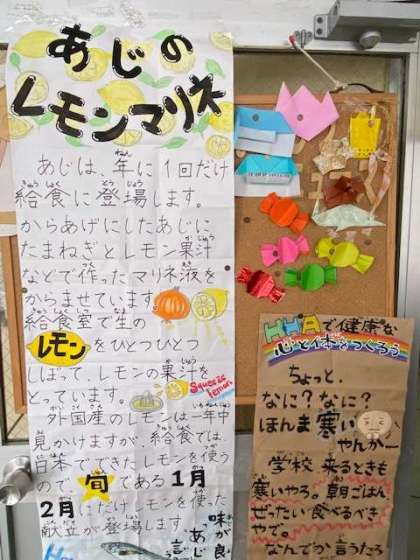 あじの
レモンマリネ
あじは、年に1回だけ
給食に登場します。
からあげにしたあじに
たまねぎとレモン果汁
などで作ったマリネ液を
からませています。
給食室で生の
レモンをひとつひとつ
しぼって、レモンの果汁を
とっています。
Squeeze lemon!
外国産のレモンは一年中
見かけますが、給食では、
日本でできたレモンを使う
ので、旬である1月
2月にだけレモンを使った
献立が登場します。
味が良
HHAで健康な
心と体をつくろう
ちょっと、
なに?なに?
ほんま寒い
やんかー
学校来るときも
寒いやろ。朝ごはん、
ぜったい食べるべき
やで。
なんでか言うたら